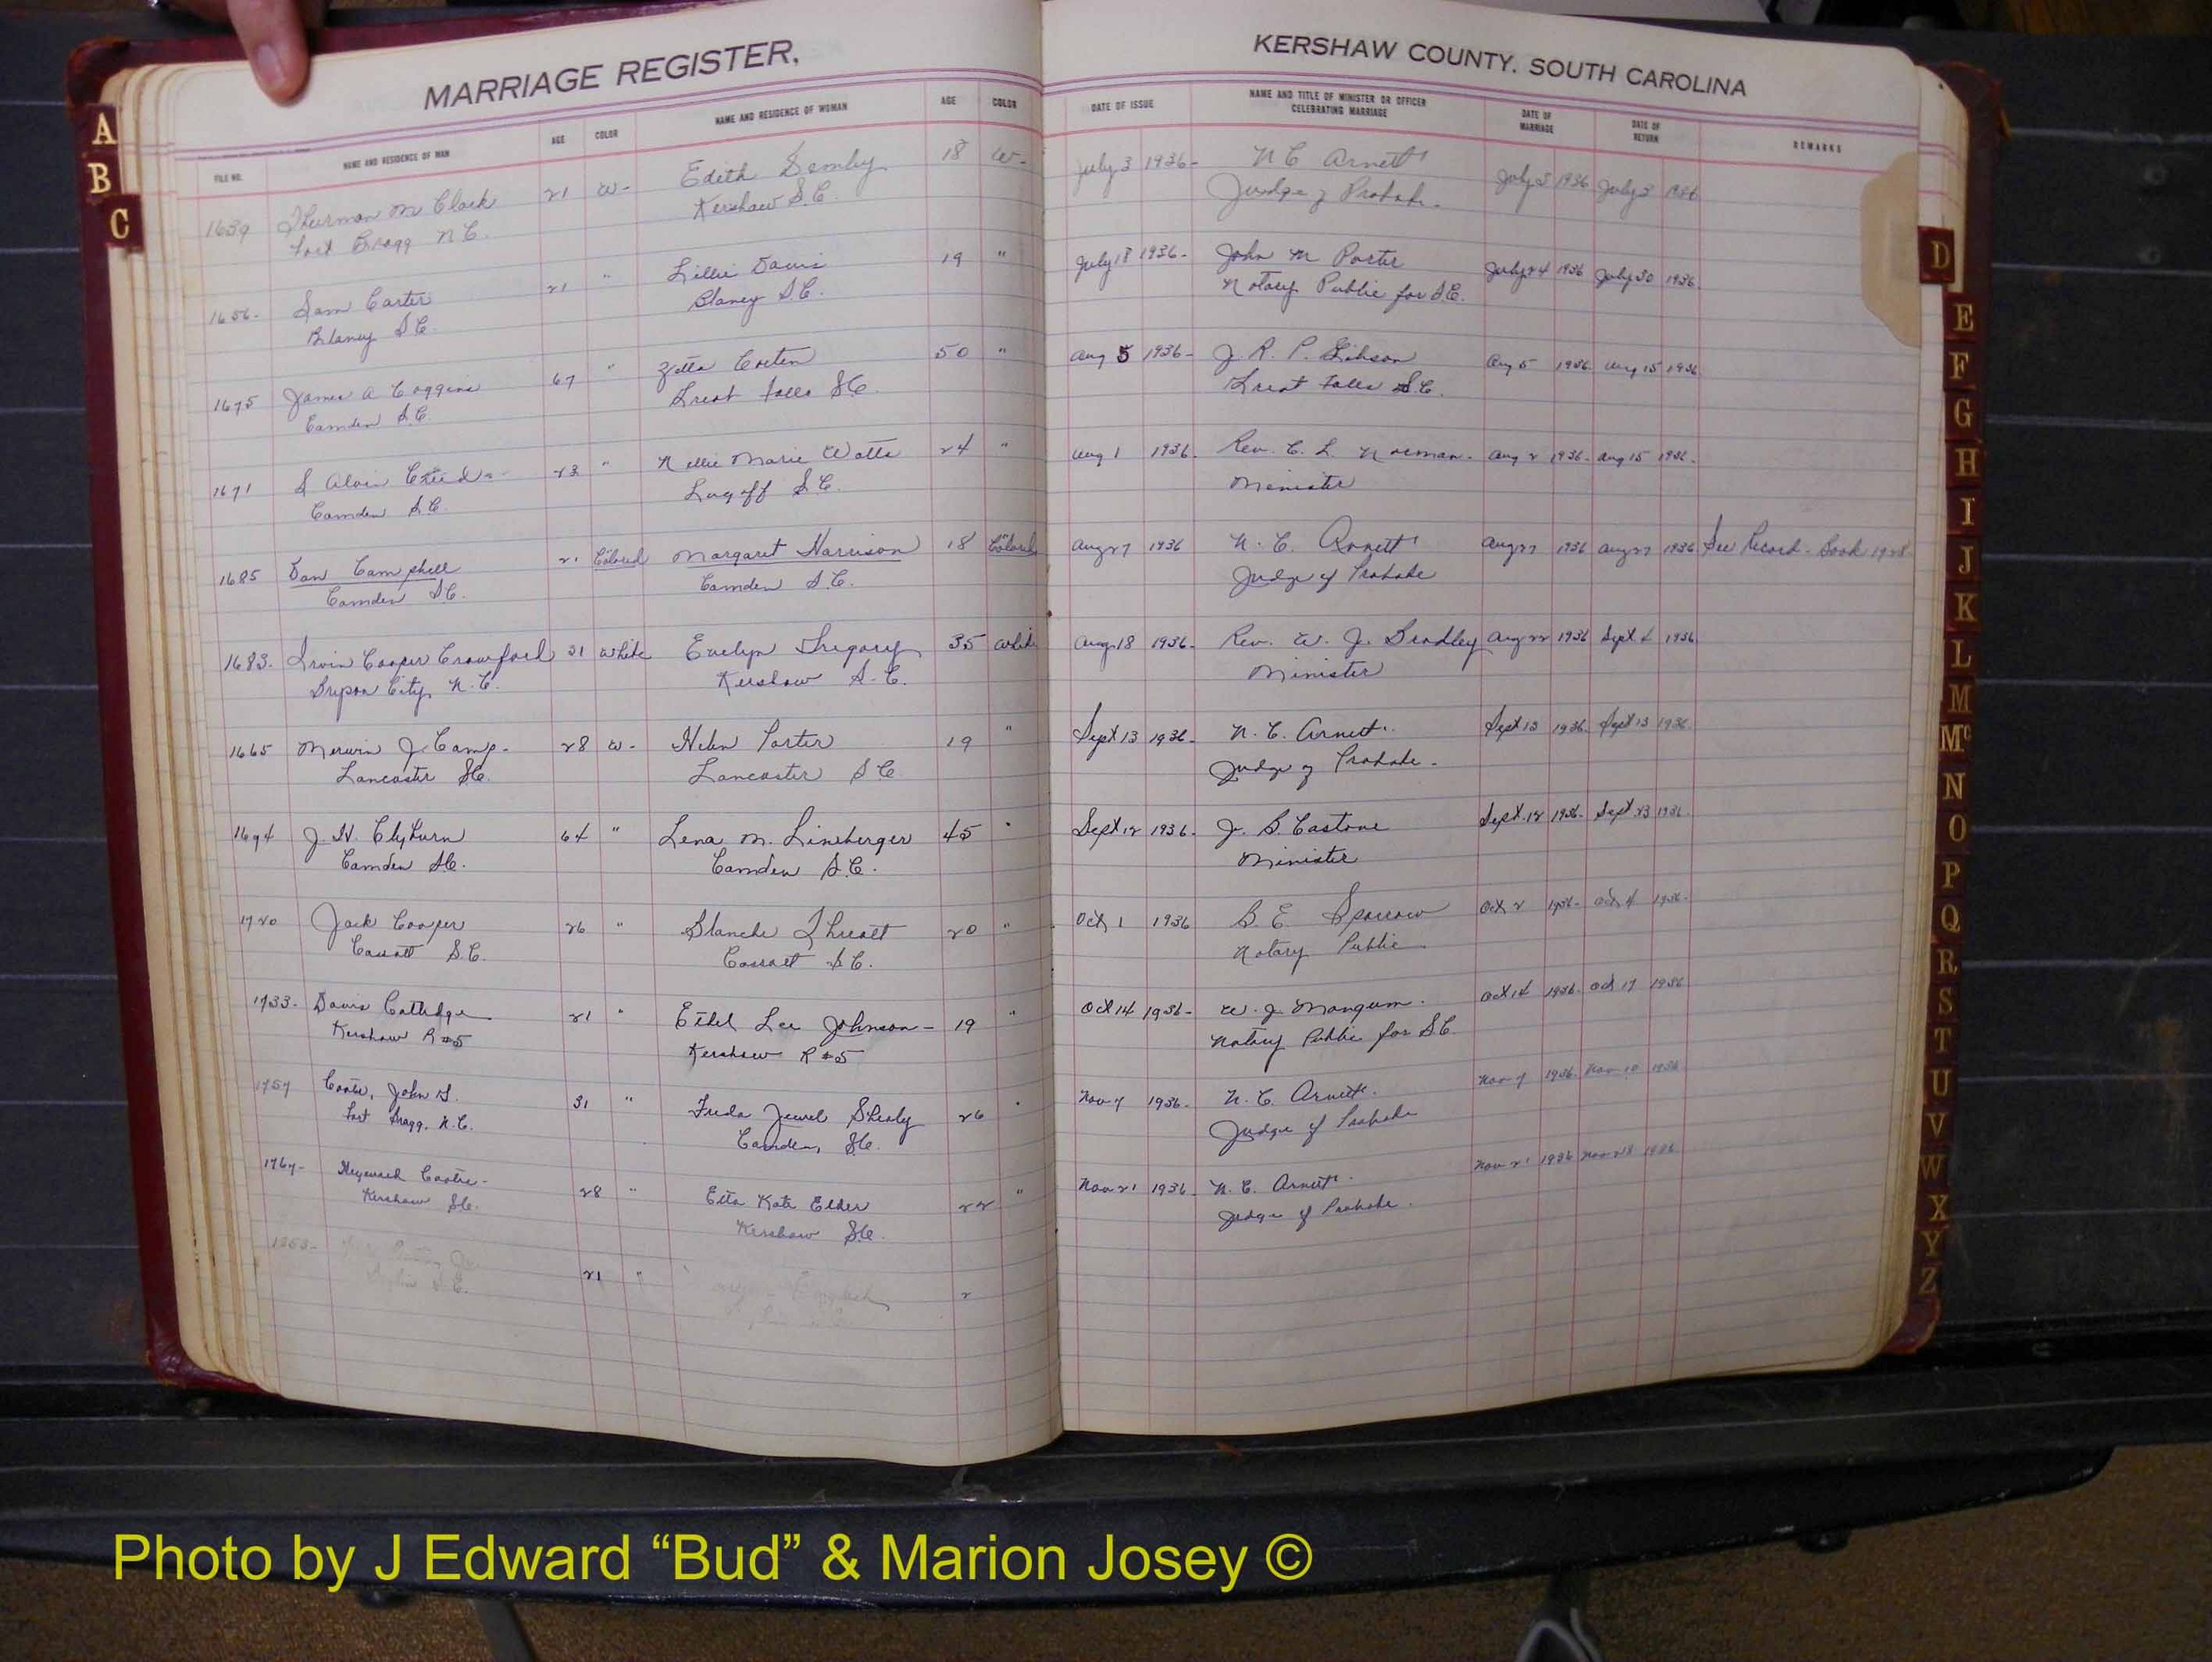 MARRIAGE REGISTER,
KERSHAW COUNTY, SOUTH CAROLINA
FILE NO. NAME AND RESIDENCE OF MAN AGE COLOR NAME AND RESIDENCE OF WOMAN AGE COLOR
DATE OF ISSUE NAME AND TITLE OF MINISTER OR OFFICER CELEBRATING MARRIAGE DATE OF MARRIAGE DATE OF RETURN REMARKS
1639 Thurman M Clark 21 W- Edith 18 W- July 3 1936- N C Arnett July 3 1936 July 3 1936
Fort Bragg N C. Kershaw S.C. Judge of Probate.
1656- Sam Carter 21 " Lillie Davis 19 " July 18 1936- John M Porter July 24 1936 July 30 1936
Blaney S.C. Blaney S.C. Notary Public for S.C.
1675 James A Coggins 67 " 50 " Aug 5 1936- J. R. P. Gibson Aug 5 1936 Aug 15 1936
Camden S.C. Great Falls S.C. Great Falls S.C.
1671 S Alvin 23 " Nellie Marie Watts 24 " Aug 1 1936. Rev. C. L. Norman- Aug 2 1936- Aug 15 1936-
Camden S.C. Lugoff S.C. Minister
1685 Dan Campbell 21 Colored Margaret Harrison 18 Colored Aug 27 1936 N. C. Arnett Aug 27 1936 Aug 27 1936 See Record- Book 1928
Camden S.C. Camden S.C. Judge of Probate
1683- Irvin Cooper Crawford 31 White Evelyn Gregory 35 White Aug 18 1936- Rev. W. J. Bradley Aug 22 1936 Sept 4 1936
Bryson City, N.C. Kershaw S.C. Minister
1665 Merwin J. Camp- 28 W- Helen Porter 19 " Sept 13 1936- N. C. Arnett. Sept 13 1936- Sept 13 1936
Lancaster S.C. Lancaster S C Judge of Probate-
1694 J. H. Clyburn 64 " Lena M. Lineberger 45 " Sept 12 1936. J. B. Caston Sept. 12 1936. Sept 23 1936
Camden S.C. Camden S.C. Minister
1720 Jack Cooper 26 " Blanche Threatt 20 " Oct 1 1936 B. E. Sparrow Oct 2 1936- Oct 4 1936-
Cassatt S.C. Cassatt S.C. Notary Public
1733- Davis Catledge 21 " Ethel Lee Johnson- 19 " Oct 14 1936- W. J. Mangum. Oct 14 1936. Oct 17 1936
Kershaw R#5 Kershaw R#5 Notary Public for S.C.
1757 John 31 " Freda Jewel Shealy 26 " Nov 7 1936- N. C. Arnett. Nov 7 1936 Nov 10 1936
Fort Bragg, N.C. Camden, S.C. Judge of Probate
1767- 28 " Etta Kate Elder 22 " Nov 21 1936. N. C. Arnett. Nov 21 1936 Nov 28 1936
Kershaw S.C. Kershaw S.C. Judge of Probate.
21 "
S.C.
A
B
C
D
E
F
G
H
I
J
K
L
M
Mc
N
O
P
Q
R
S
T
U
V
W
X
Y
Z
Photo by J Edward “Bud” & Marion Josey ©